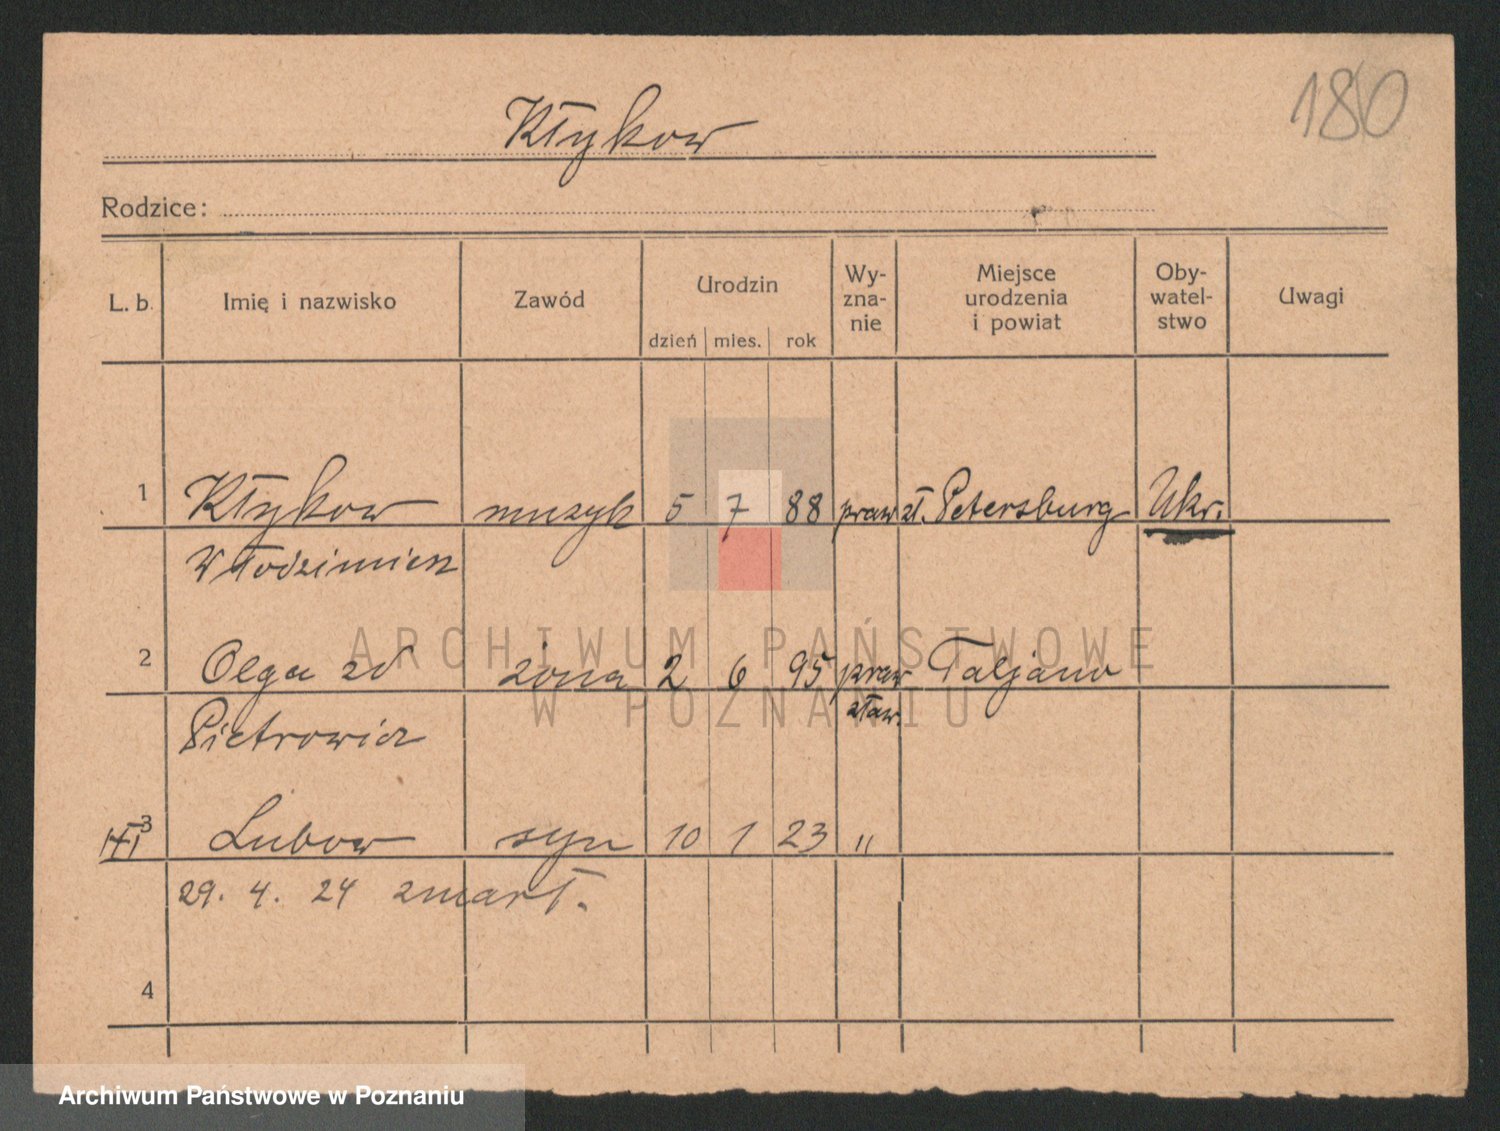 180
Kłykow
Rodzice:
L. b. Imię i nazwisko Zawód Urodzin dzień mies. rok Wy-zna-nie Miejsce urodzenia i powiat Oby-watel-stwo Uwagi
1 Kłykow muzyk 5 7 88 prawzł. Petersburg Ukr.
Włodzimierz
2 Olga zd żona 2 6 95 praw Taljano
Pietrowicz zław.
3 Lubow syn 10 1 23 "
29. 4. 24 zmarł.
4
ARCHIWUM PAŃSTWOWE
W POZNANIU
Archiwum Państwowe w Poznaniu